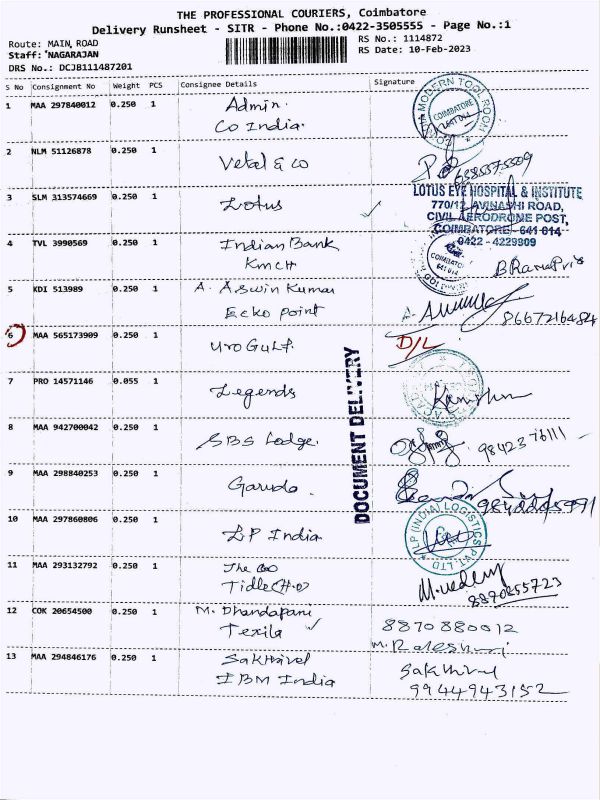 THE PROFESSIONAL COURIERS, Coimbatore
Delivery Runsheet - SITR - Phone No.:0422-3505555 - Page No.:1
Route: MAIN ROAD
RS No.: 1114872
Staff: NAGARAJAN
RS Date: 10-Feb-2023
DRS No.: DCJB111487201
S No Consignment No Weight PCS Consignee Details Signature
1 MAA 297840012 0.250 1 Admin.
Co India.
MODERN TOOL ROOM
COIMBATORE
641 014
2 NLM 51126878 0.250 1 Vetal & Co
3 SLM 313574669 0.250 1 Lotus
LOTUS EYE HOSPITAL & INSTITUTE
770/12, AVINASHI ROAD,
CIVIL AERODROME POST,
COIMBATORE - 641 014
0422 - 4229909
4 TVL 3990569 0.250 1 Indian Bank
KMCH
COIMBATORE
641 014
5 KDI 513989 0.250 1 A. Aswin Kumar
Ecko Point
8667216484
6 MAA 565173909 0.250 1 Uro Gulf.
D/L
DOCUMENT DELIVERY
7 PRO 14571146 0.055 1 Legends
8 MAA 942700042 0.250 1 SBS Lodge.
98423 76111
9 MAA 298840253 0.250 1 Garuda.
10 MAA 297860806 0.250 1 LP India
LP (INDIA) LOGISTICS PVT. LTD
11 MAA 293132792 0.250 1 The
Tidle (H.O)
8870255723
12 COK 20654500 0.250 1 M. Dhandapani
Texila
8870880012
13 MAA 294846176 0.250 1 Sakthivel
IBM India
Sakthivel
9944943152